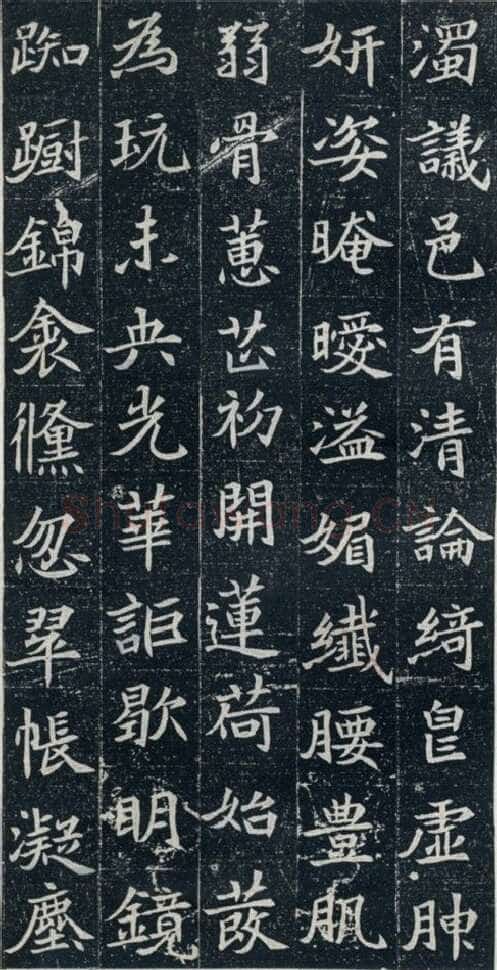 濁議邑有清論綺皀虛胂
妍姿晻曖溢媚纖腰豊肌
弱骨蕙芷初開蓮荷始
為玩未央光華詎歇明鏡
踟蹰錦衾儵忽翆帳凝塵
Shufawang.CN